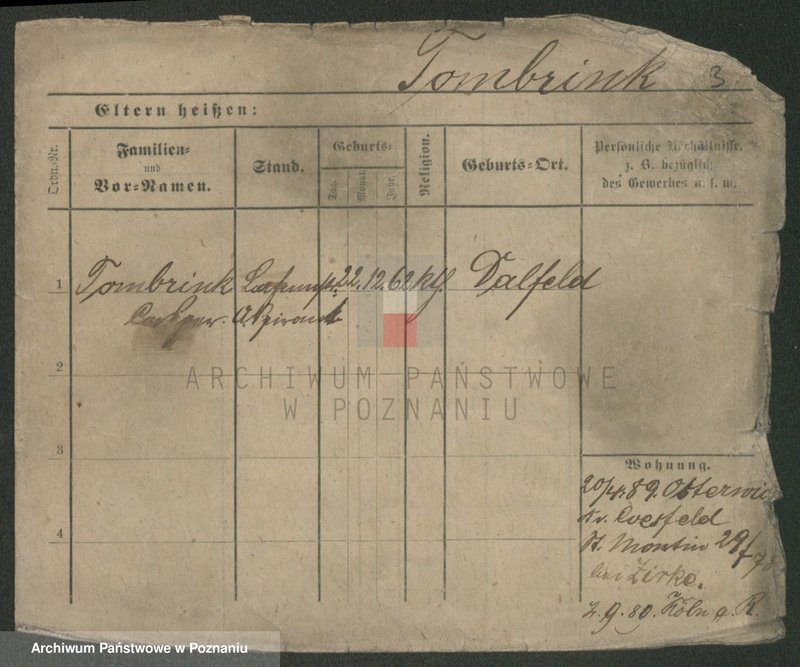 Tombrink 3
Eltern heißen:
Ordn.-Nr.
Familien-
und
Vor-Namen.
Stand.
Geburts-
Tag.
Monat.
Jahr.
Religion.
Geburts-Ort.
Persönliche Verhältnisse,
z. B. bezüglich
des Gewerbes u. s. w.
1 Tombrink 22. 12. 62 kth. Dalfeld
2
3
4
Wohnung.
20/4. 89. Osterwic
Kr. Coesfeld
St. Martin 29/7
bei Zirke.
2. 9. 89. Köln a. R.
ARCHIWUM PAŃSTWOWE
W POZNANIU
Archiwum Państwowe w Poznaniu